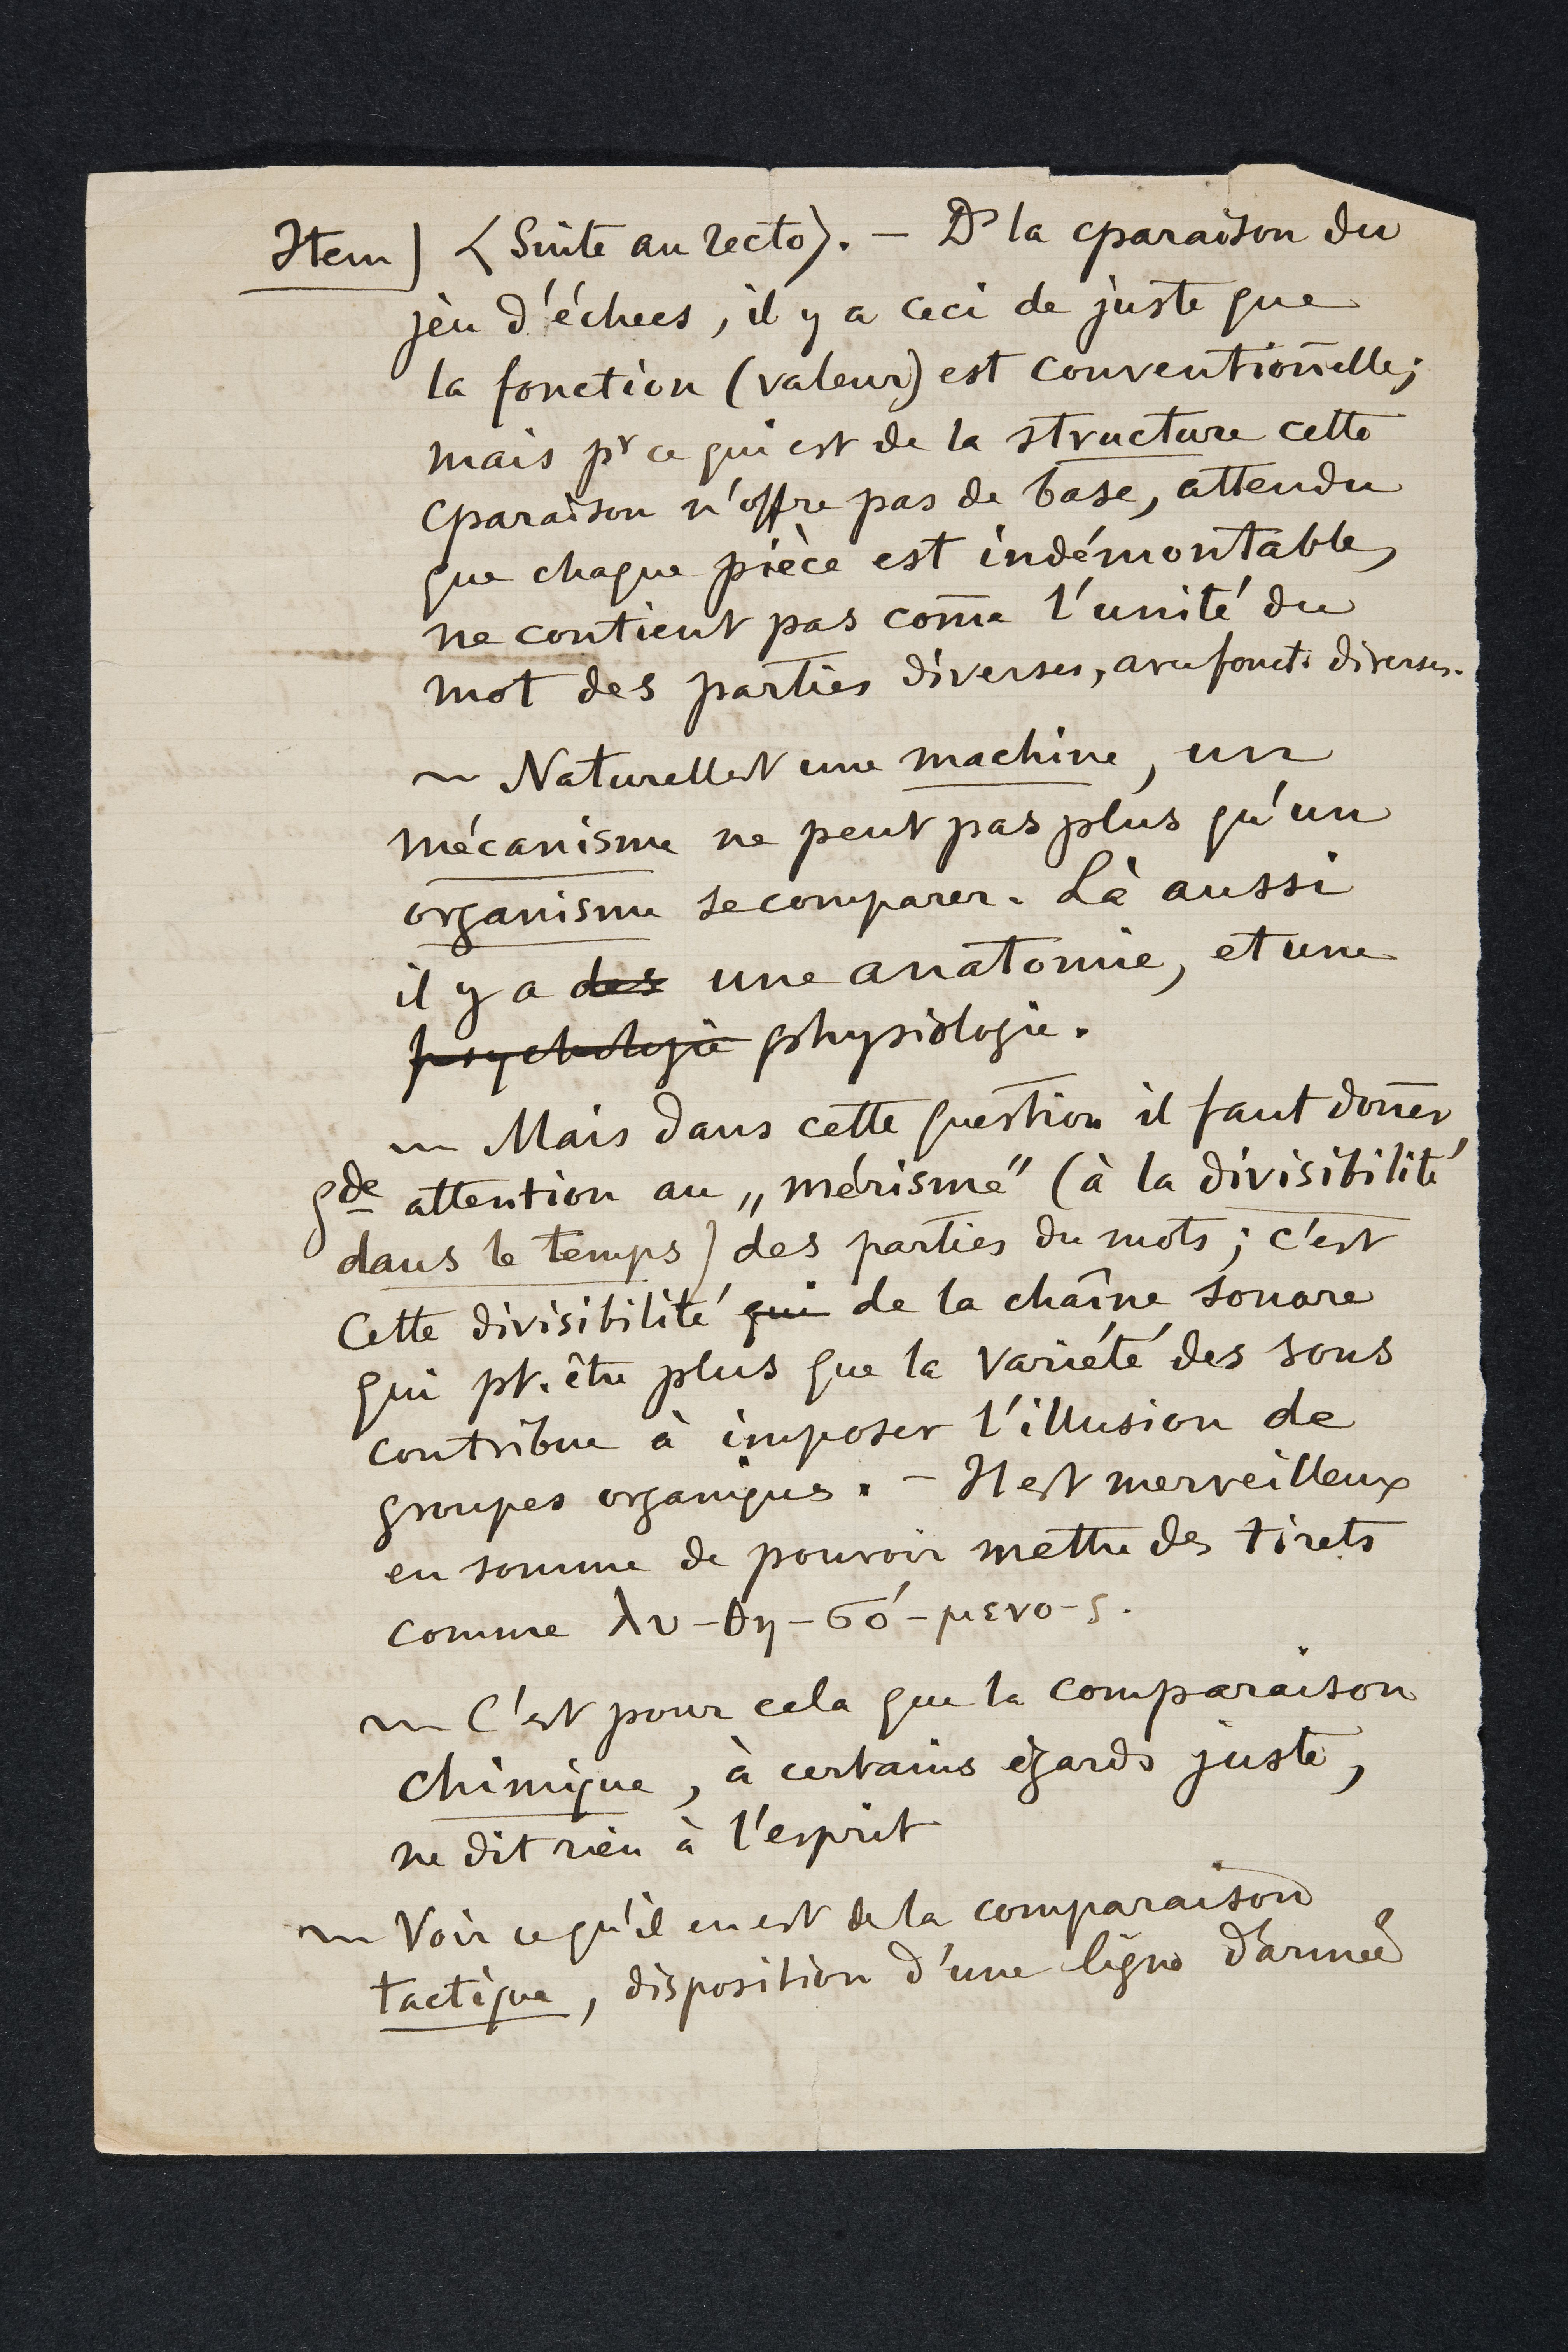 Item) ⟨Suite au recto⟩. — Ds la cparaison du
jeu d'échecs, il y a ceci de juste que
la fonction (valeur) est conventioñelle;
mais pr ce qui est de la structure cette
cparaison n'offre pas de base, attendu
que chaque pièce est indémontable,
ne contient pas com̄e l'unité du
mot des parties diverses, avec fonct. diverses.
~ Naturellest une machine, un
mécanisme ne peut pas plus qu'un
organisme se comparer. Là aussi
il y a des une anatomie, et une
psychologie physiologie.
~ Mais dans cette question il faut don̄er
gde attention au „mérisme" (à la divisibilité
dans le temps) des parties du mots; c'est
Cette divisibilité qui de la chaîne sonore
qui pt. être plus que la variété des sons
contribue à imposer l'illusion de
groupes organiques. — Il est merveilleux
en somme de pouvoir mettre des tirets
comme λυ-θη-σό-μενο-ς.
~ C'est pour cela que la comparaison
chimique, à certains égards juste,
ne dit rien à l'esprit
~ Voir ce qu'il en est de la comparaison
tactique, disposition d'une ligne d'armée